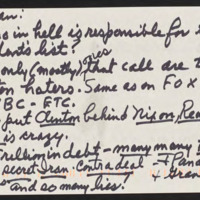 an:
o in hell is responsible for
lants list? yes
only (mostly) that call are
on haters. Same as on FOX
BC - ETC.
put Clinton behind Nixon, Rea
is crazy.
rillion in debt - many many
secret Iran. Contra deal - 
and so many lies!